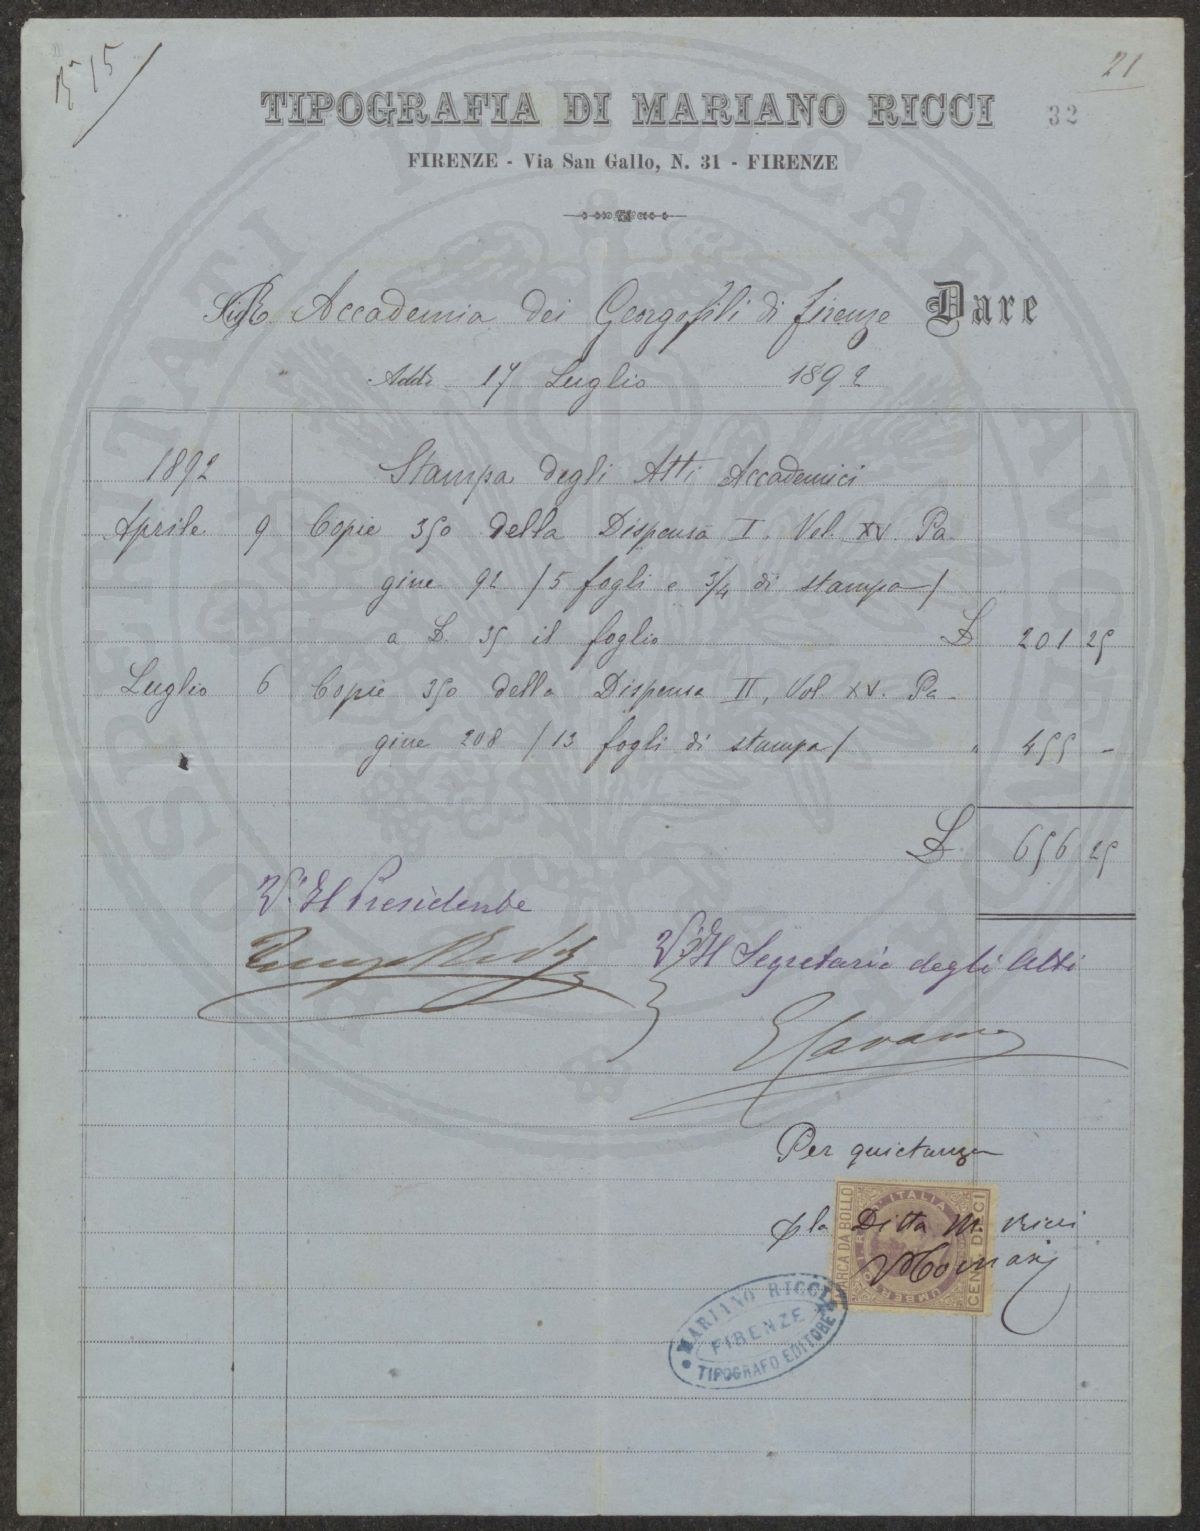 15
21
TIPOGRAFIA DI MARIANO RICCI
32
FIRENZE - Via San Gallo, N. 31 - FIRENZE
R. Accademia dei Georgofili di Firenze Dare
Addì 17 Luglio 1892
1892 Stampa degli Atti Accademici
Aprile 9 Copie 350 della Dispensa I. Vol. XV. Pa-
gine 92 / 5 fogli e 3/4 di stampa /
a L. 35 il foglio L 201 25
Luglio 6 Copie 350 della Dispensa II, Vol XV. Pa-
gine 208 / 13 fogli di stampa / " 455 -
L. 656 25
V.° Il Presidente
V.° Il Segretario degli Atti
Per quietanza
p la Ditta M. Ricci
MARCA DA BOLLO
D'ITALIA
UMBERTO I
CENT. DIECI
MARIANO RICCI
FIRENZE
TIPOGRAFO EDITORE
PROSPERITATI PUBLICAE AUGENDAE